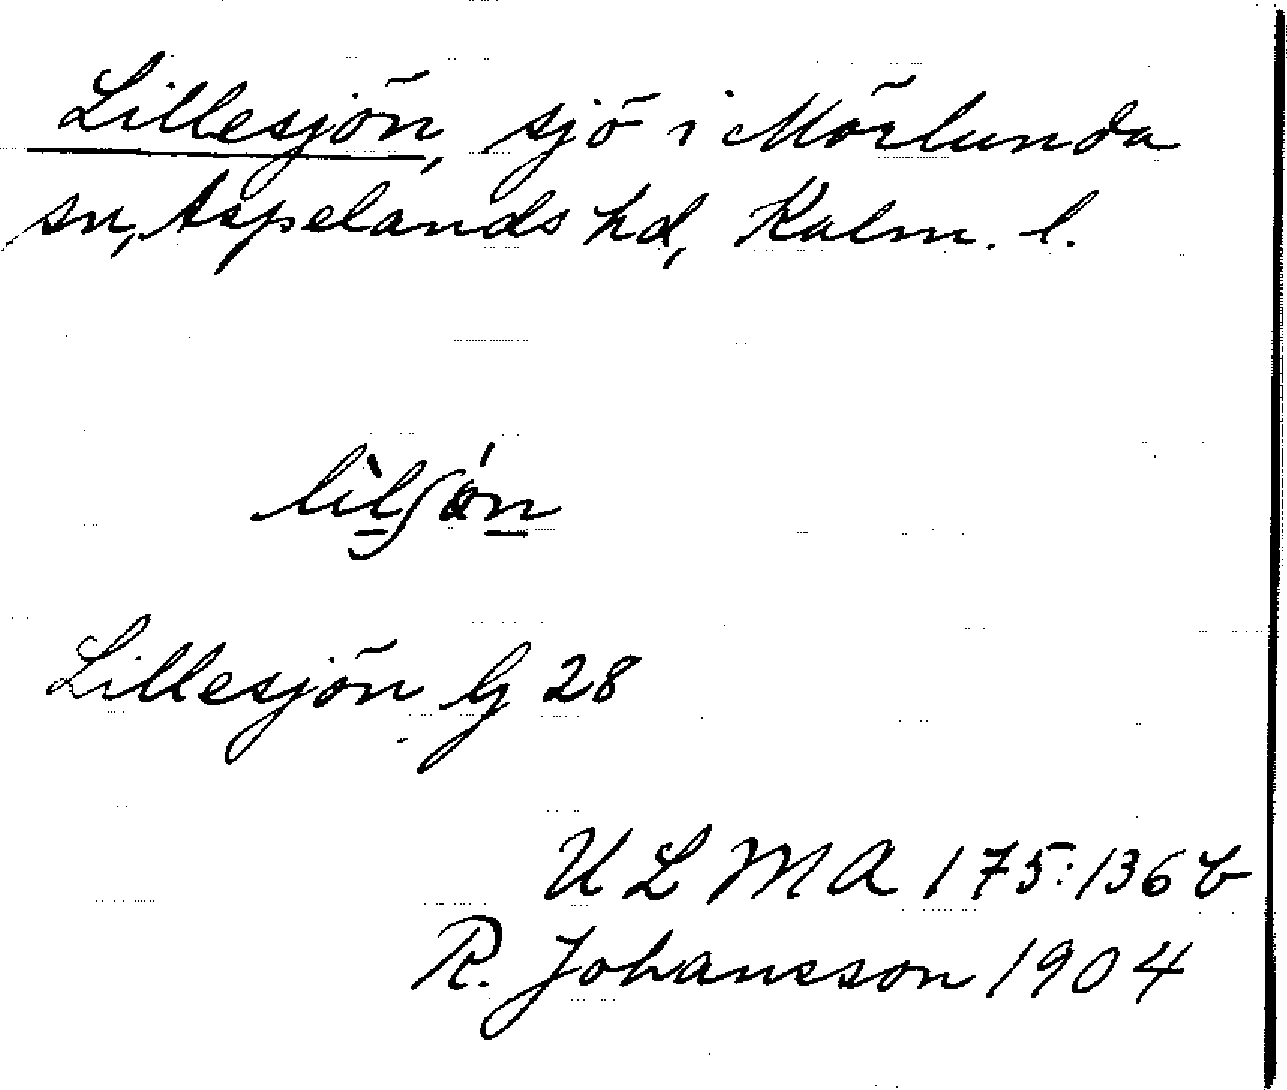 Lillesjön, sjö i Mörlunda
sn, Aspelands hd, Kalm. l.
Lillesjön G 28
ULMA 175:136 b
R. Johansson 1904